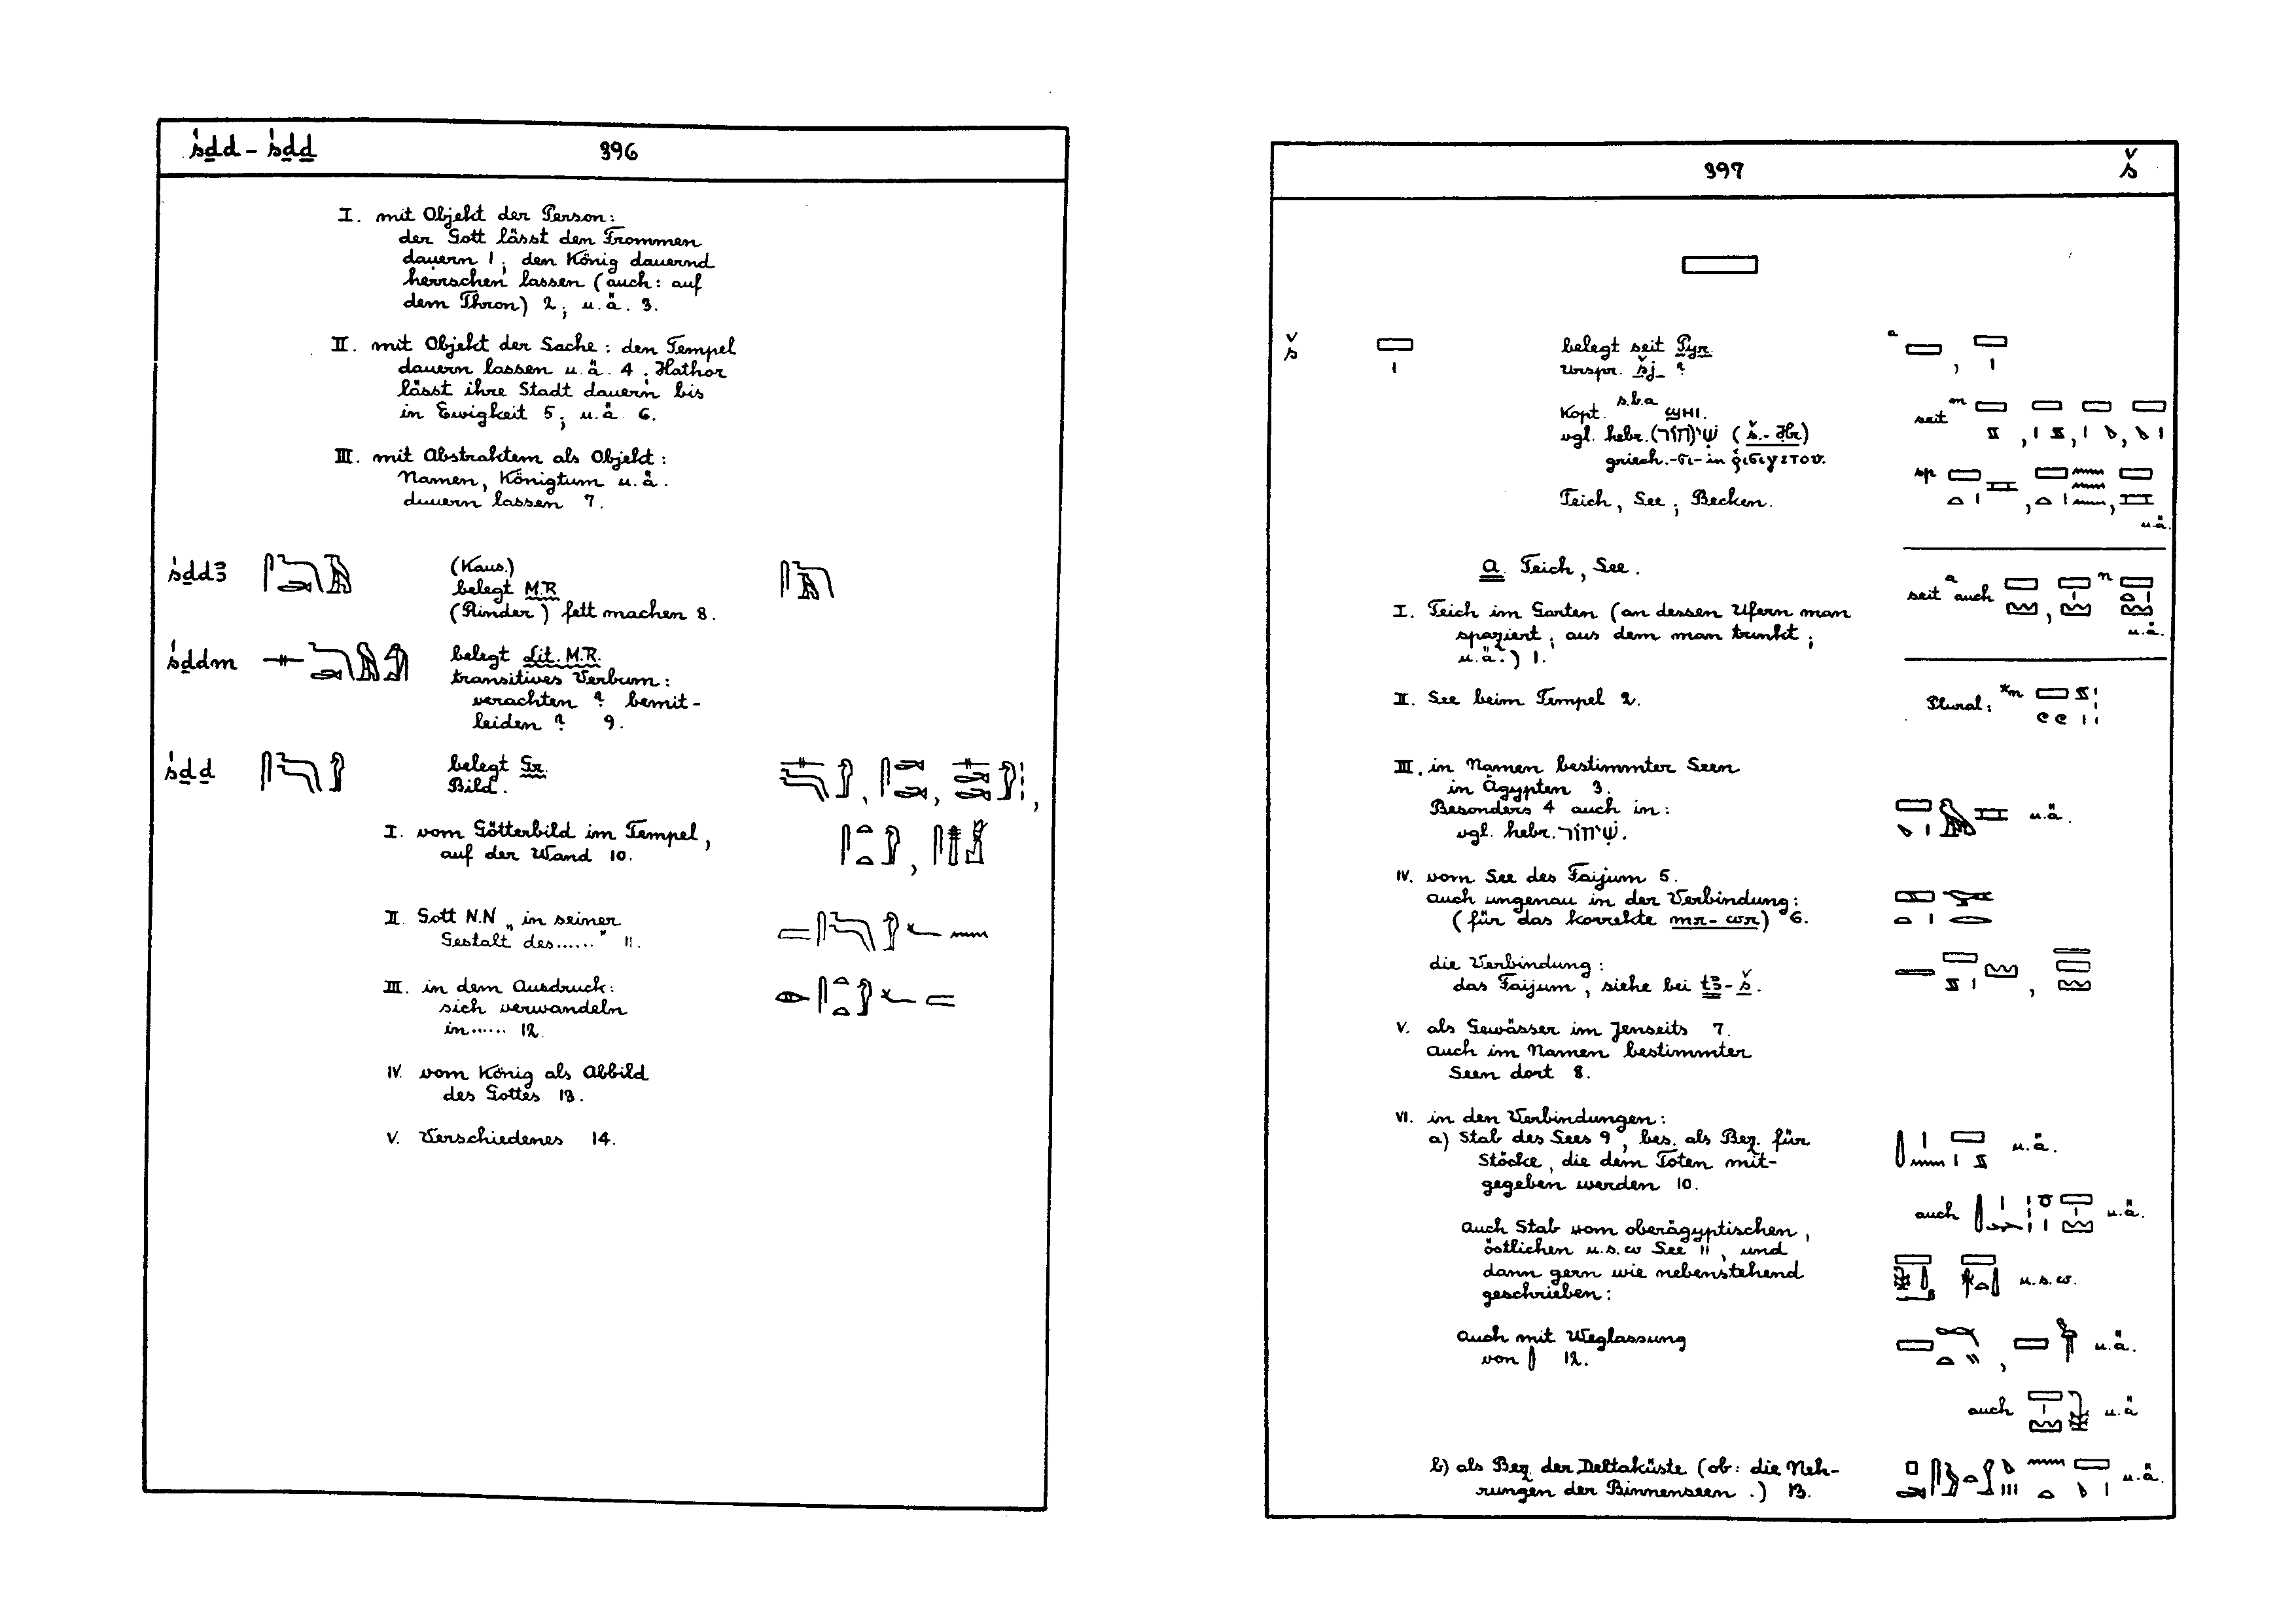 ś̱dd - śḏḏ 396
I. mit Objekt der Person:
der Gott lässt den Frommen
dauern 1; den König dauernd
herrschen lassen (auch: auf
dem Thron) 2; u.ä. 3.
II. mit Objekt der Sache: den Tempel
dauern lassen u.ä. 4; Hathor
lässt ihre Stadt dauern bis
in Ewigkeit 5; u.ä. 6.
III. mit Abstraktem als Objekt:
Namen, Königtum u.ä.
dauern lassen 7.
śḏdꜣ (Kaus.)
belegt M.R.
(Rinder) fett machen 8.
śḏdm belegt Lit. M.R.
transitives Verbum:
verachten? bemit-
leiden? 9.
śḏḏ belegt Gr.
Bild.
I. vom Götterbild im Tempel,
auf der Wand 10.
II. Gott N.N „in seiner
Gestalt des......" 11.
III. in dem Ausdruck:
sich verwandeln
in...... 12.
IV. vom König als Abbild
des Gottes 13.
V. Verschiedenes 14.
397 š
š belegt seit Pyr. a
urspr. šj ?
s.b.a
Kopt. ϣΗΙ. seit m
vgl. hebr. שִׁי(חוֹר) (š-Ḥr)
griech. -σι- in
sp
Teich, See; Becken. u.ä.
a. Teich, See.
seit a auch n u.ä.
I. Teich im Garten (an dessen Ufern man
spaziert; aus dem man trinkt;
u.ä.) 1.
II. See beim Tempel 2. Plural: *m
III. in Namen bestimmter Seen
in Ägypten 3.
Besonders 4 auch in: u.ä.
vgl. hebr. שִׁיחוֹר.
IV. vom See des Faijum 5.
auch ungenau in der Verbindung:
(für das korrekte mr-wr) 6.
die Verbindung:
das Faijum, siehe bei tꜣ-š.
V. als Gewässer im Jenseits 7.
auch im Namen bestimmter
Seen dort 8.
VI. in den Verbindungen:
a) Stab des Sees 9, bes. als Bez. für u.ä.
Stöcke, die dem Toten mit-
gegeben werden 10.
auch u.ä.
auch Stab vom oberägyptischen,
östlichen u.s.w See 11, und
dann gern wie nebenstehend u.s.w.
geschrieben:
auch mit Weglassung u.ä.
von 12.
auch u.ä
b) als Bez. der Deltaküste (ob: die Neh- u.ä.
rungen der Binnenseen.) 13.